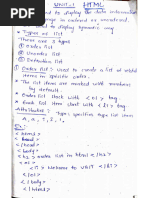 UNIT-1 HTML
used to display the data information
in ordered or unordered.
used to display symmetric way
* Types of list
There are 3 types
① order list
② Unorder list
③ Defination list
① Order list: used to create a list of related
items in specific order.
* The list items are marked with numbers
by default.
* Order list start with <ol> tag.
* Each list item start with <li> tag.
Attributes: type: specifies type list item
A, a, I, i, 1.
Ex:
<html>
<head>
</head>
<body>
<h2> order list in html </h2>
<ol>
<li> Welcome to </li>
</ol>
</body>
</html>